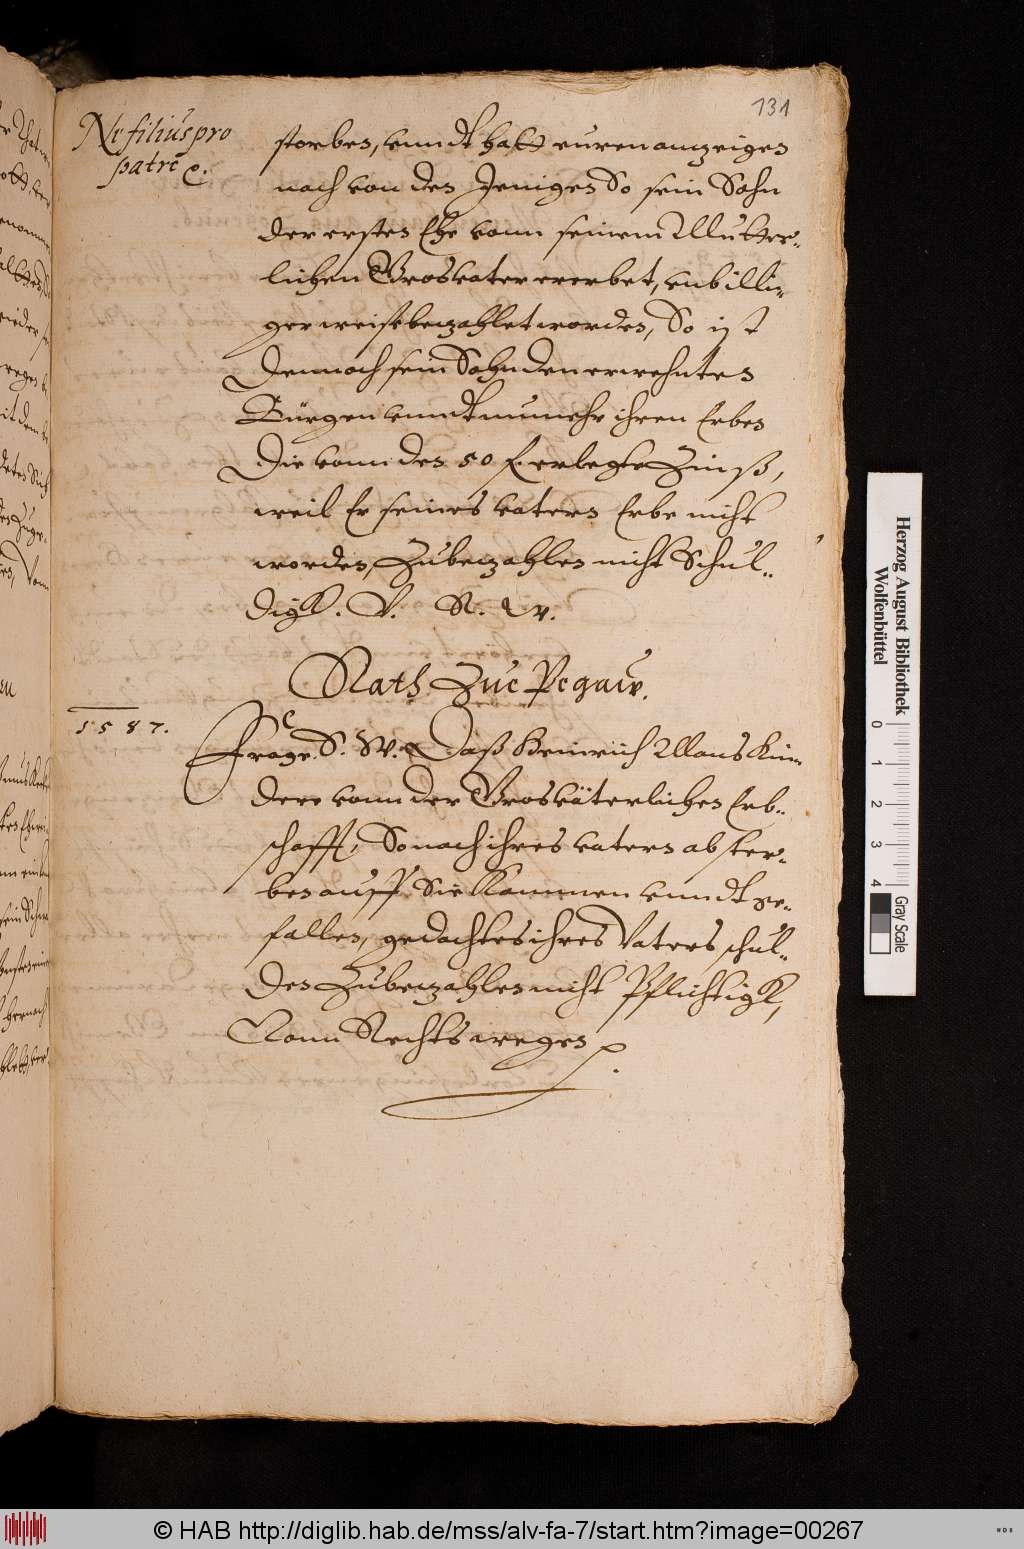 131
Ne filius pro
patre ꝛc.
storben, vnndt hatt euren anzeigen
nach von den Jenigen So sein Sohn
der ersten Ehe vonn seinem Mutter-
lichen Grosvater ererbet, vnbilli-
ger weise bezahlet worden, So ist
Dennoch sein Sohn den erwehnten
Bürgen vnndt nunmehr ihren Erben
Die vonn den 50 f. erlegte Zinß,
weil Er seines vaters Erbe nicht
worden, Zubezahlen nicht Schul-
digk. V. R. W.
Rath Zue Pegaw.
1587.
Frage S. W. Daß Heinrich Mans Kin-
dere vonn der Grosväterlichen Erb-
schafft, So nach ihres vaters abster-
ben auff Sie Kommen vnndt ge-
fallen, gedachtes ihres Vaters schul-
den Zubezahlen nicht Pflichtigk,
Vonn Rechts wegen
Herzog August Bibliothek
Wolfenbüttel
0 1 2 3 4
Gray Scale
© HAB http://diglib.hab.de/mss/alv-fa-7/start.htm?image=00267